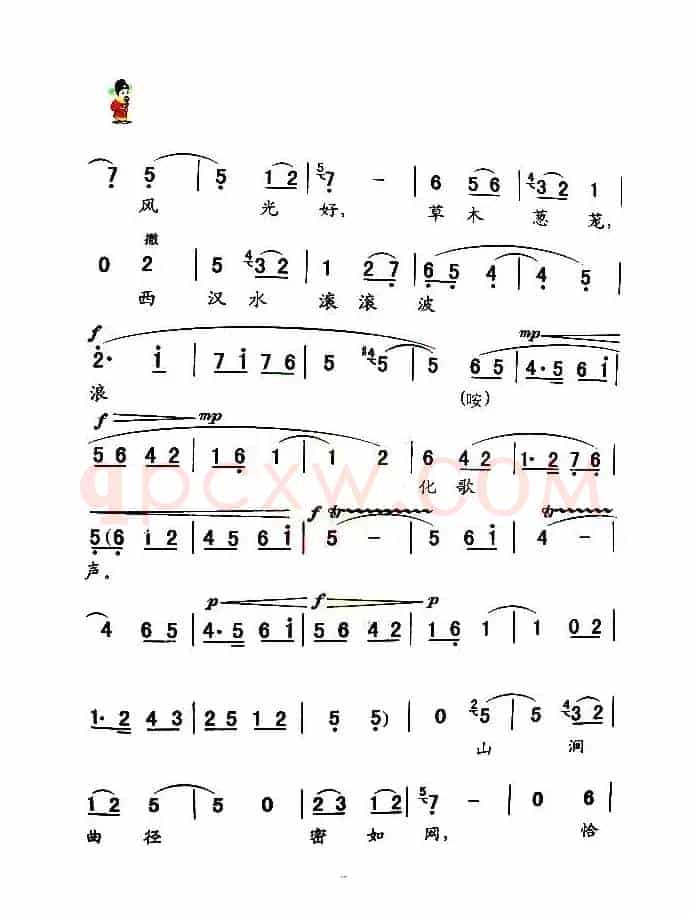 7 5 | 5 1 2 | 5 7 - | 6 5 6 | 4 3 2 1 |
风 光 好, 草 木 葱 茏,
撒
0 2 | 5 4 3 2 | 1 2 7 | 6 5 4 | 4 5 |
西 汉 水 滚 滚 波
f mp
2· i | 7 i 7 6 | 5 #4 5 | 5 6 5 | 4·5 6 i |
浪 (咹)
f mp
5 6 4 2 | 1 6 1 | 1 2 | 6 4 2 | 1·2 7 6 |
化 歌
qpcxw.com
f tr tr
5(6 i 2 | 4 5 6 i | 5 - | 5 6 i | 4 - |
声。
p f p
4 6 5 | 4·5 6 i | 5 6 4 2 | 1 6 1 | 1 0 2 |
1·2 4 3 | 2 5 1 2 | 5 5) | 0 2 5 | 5 4 3 2 |
山 涧
1 2 5 | 5 0 | 2 3 1 2 | 5 7 - | 0 6 |
曲 径 密 如 网, 恰